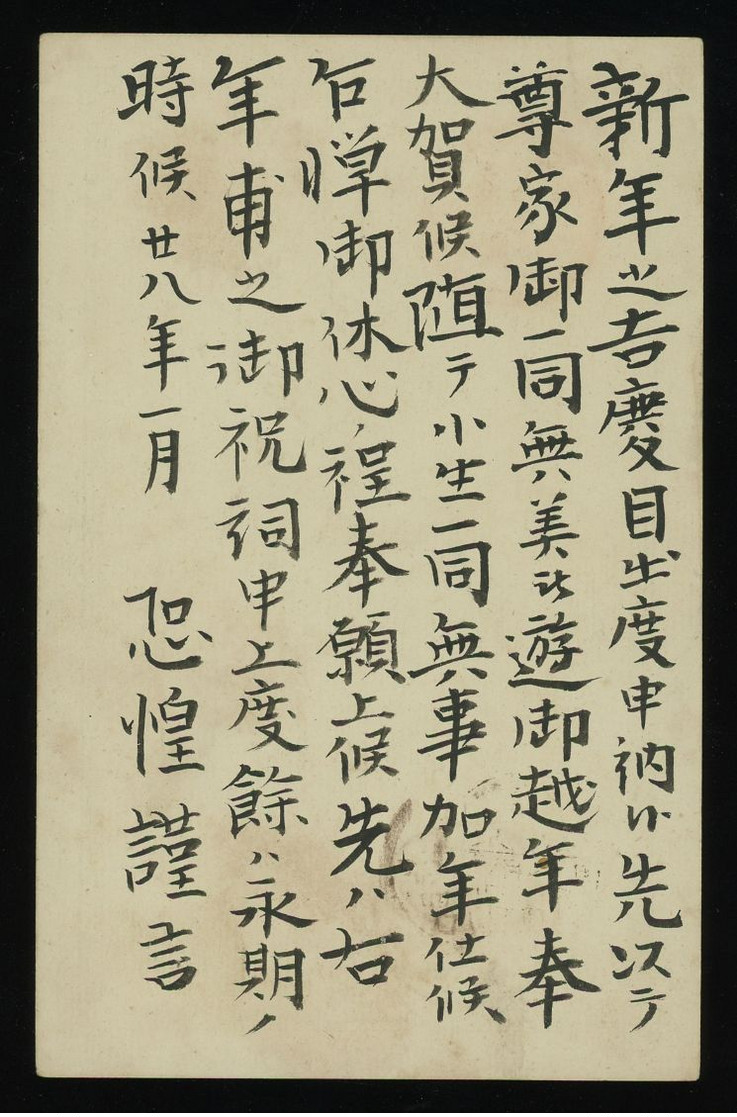 新年之吉慶目出度申納候先以テ
尊家御一同無美比遊御越年奉
大賀候随テ小生一同無事加年仕候
乍憚御休心ノ程奉願上候先ハ右
年甫之御祝詞申上度餘ハ永期ノ
時候廿八年一月 恐惶謹言